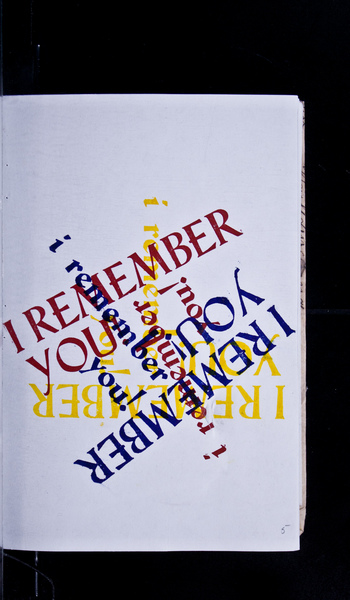 i remember
you!
I REMEMBER
YOU
i remember
you!
i remember
you.
I REMEMBER
YOU
I REMEMBER
YOU
5